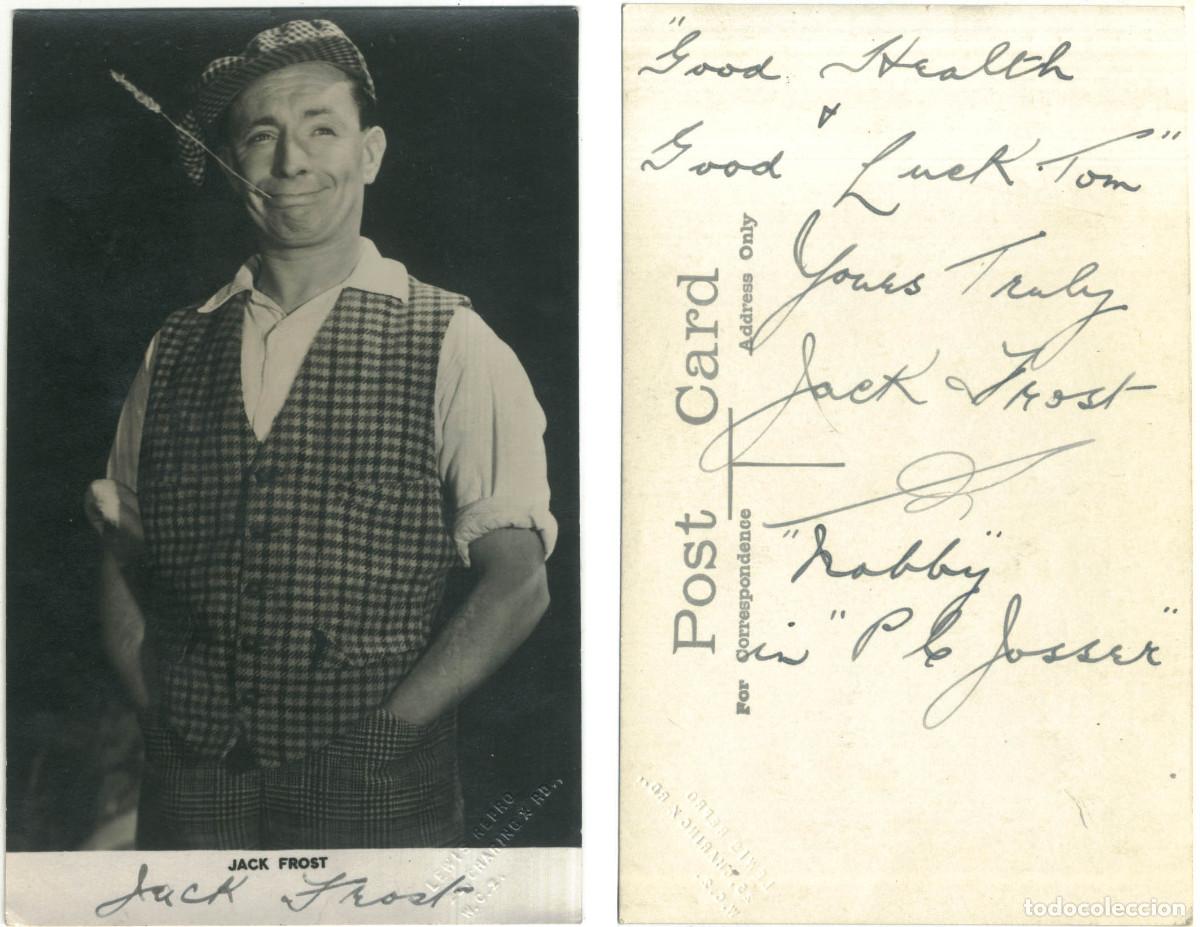 JACK FROST
Jack Frost
LEWIS REPRO
CHARING X RD.,
W.C.2.
"Good Health
&
Good Luck Tom"
Yours Truly
Jack Frost
"Nobby"
in "P C Josser"
Post Card
For Correspondence
Address Only
LEWIS REPRO
CHARING X RD.,
W.C.2.
todocoleccion